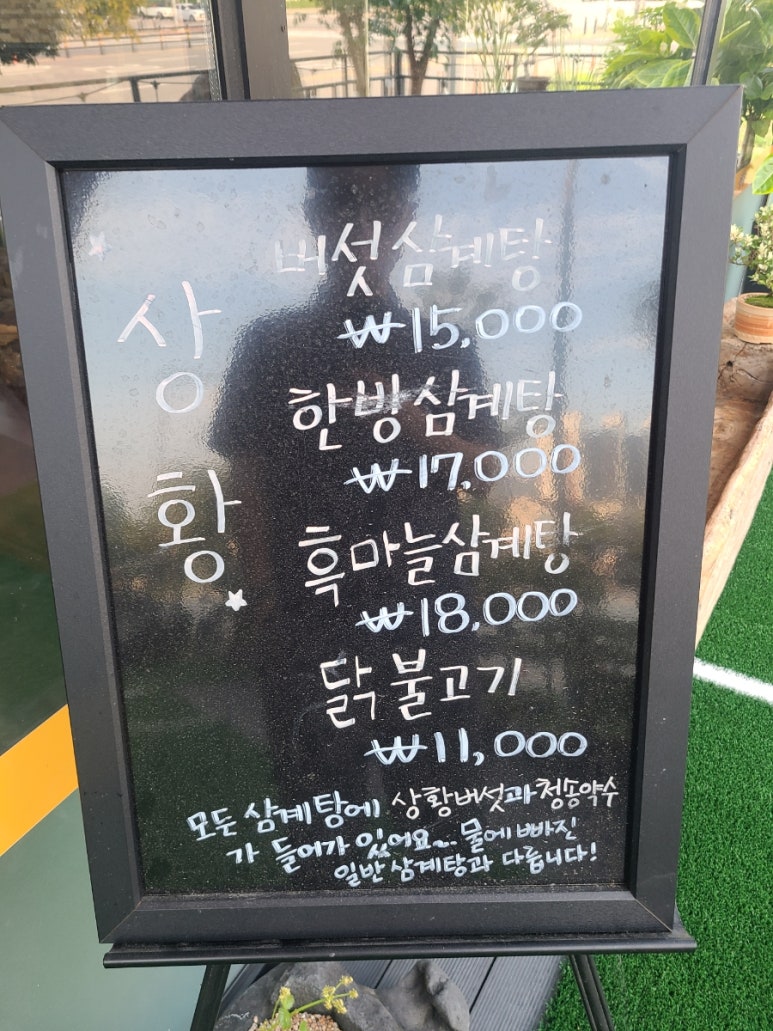 상황
버섯삼계탕
₩15,000
한방삼계탕
₩17,000
흑마늘삼계탕
₩18,000
닭불고기
₩11,000
모든 삼계탕에 상황버섯과 청송약수
가 들어가 있어요~. 물에 빠진
일반 삼계탕과 다릅니다!